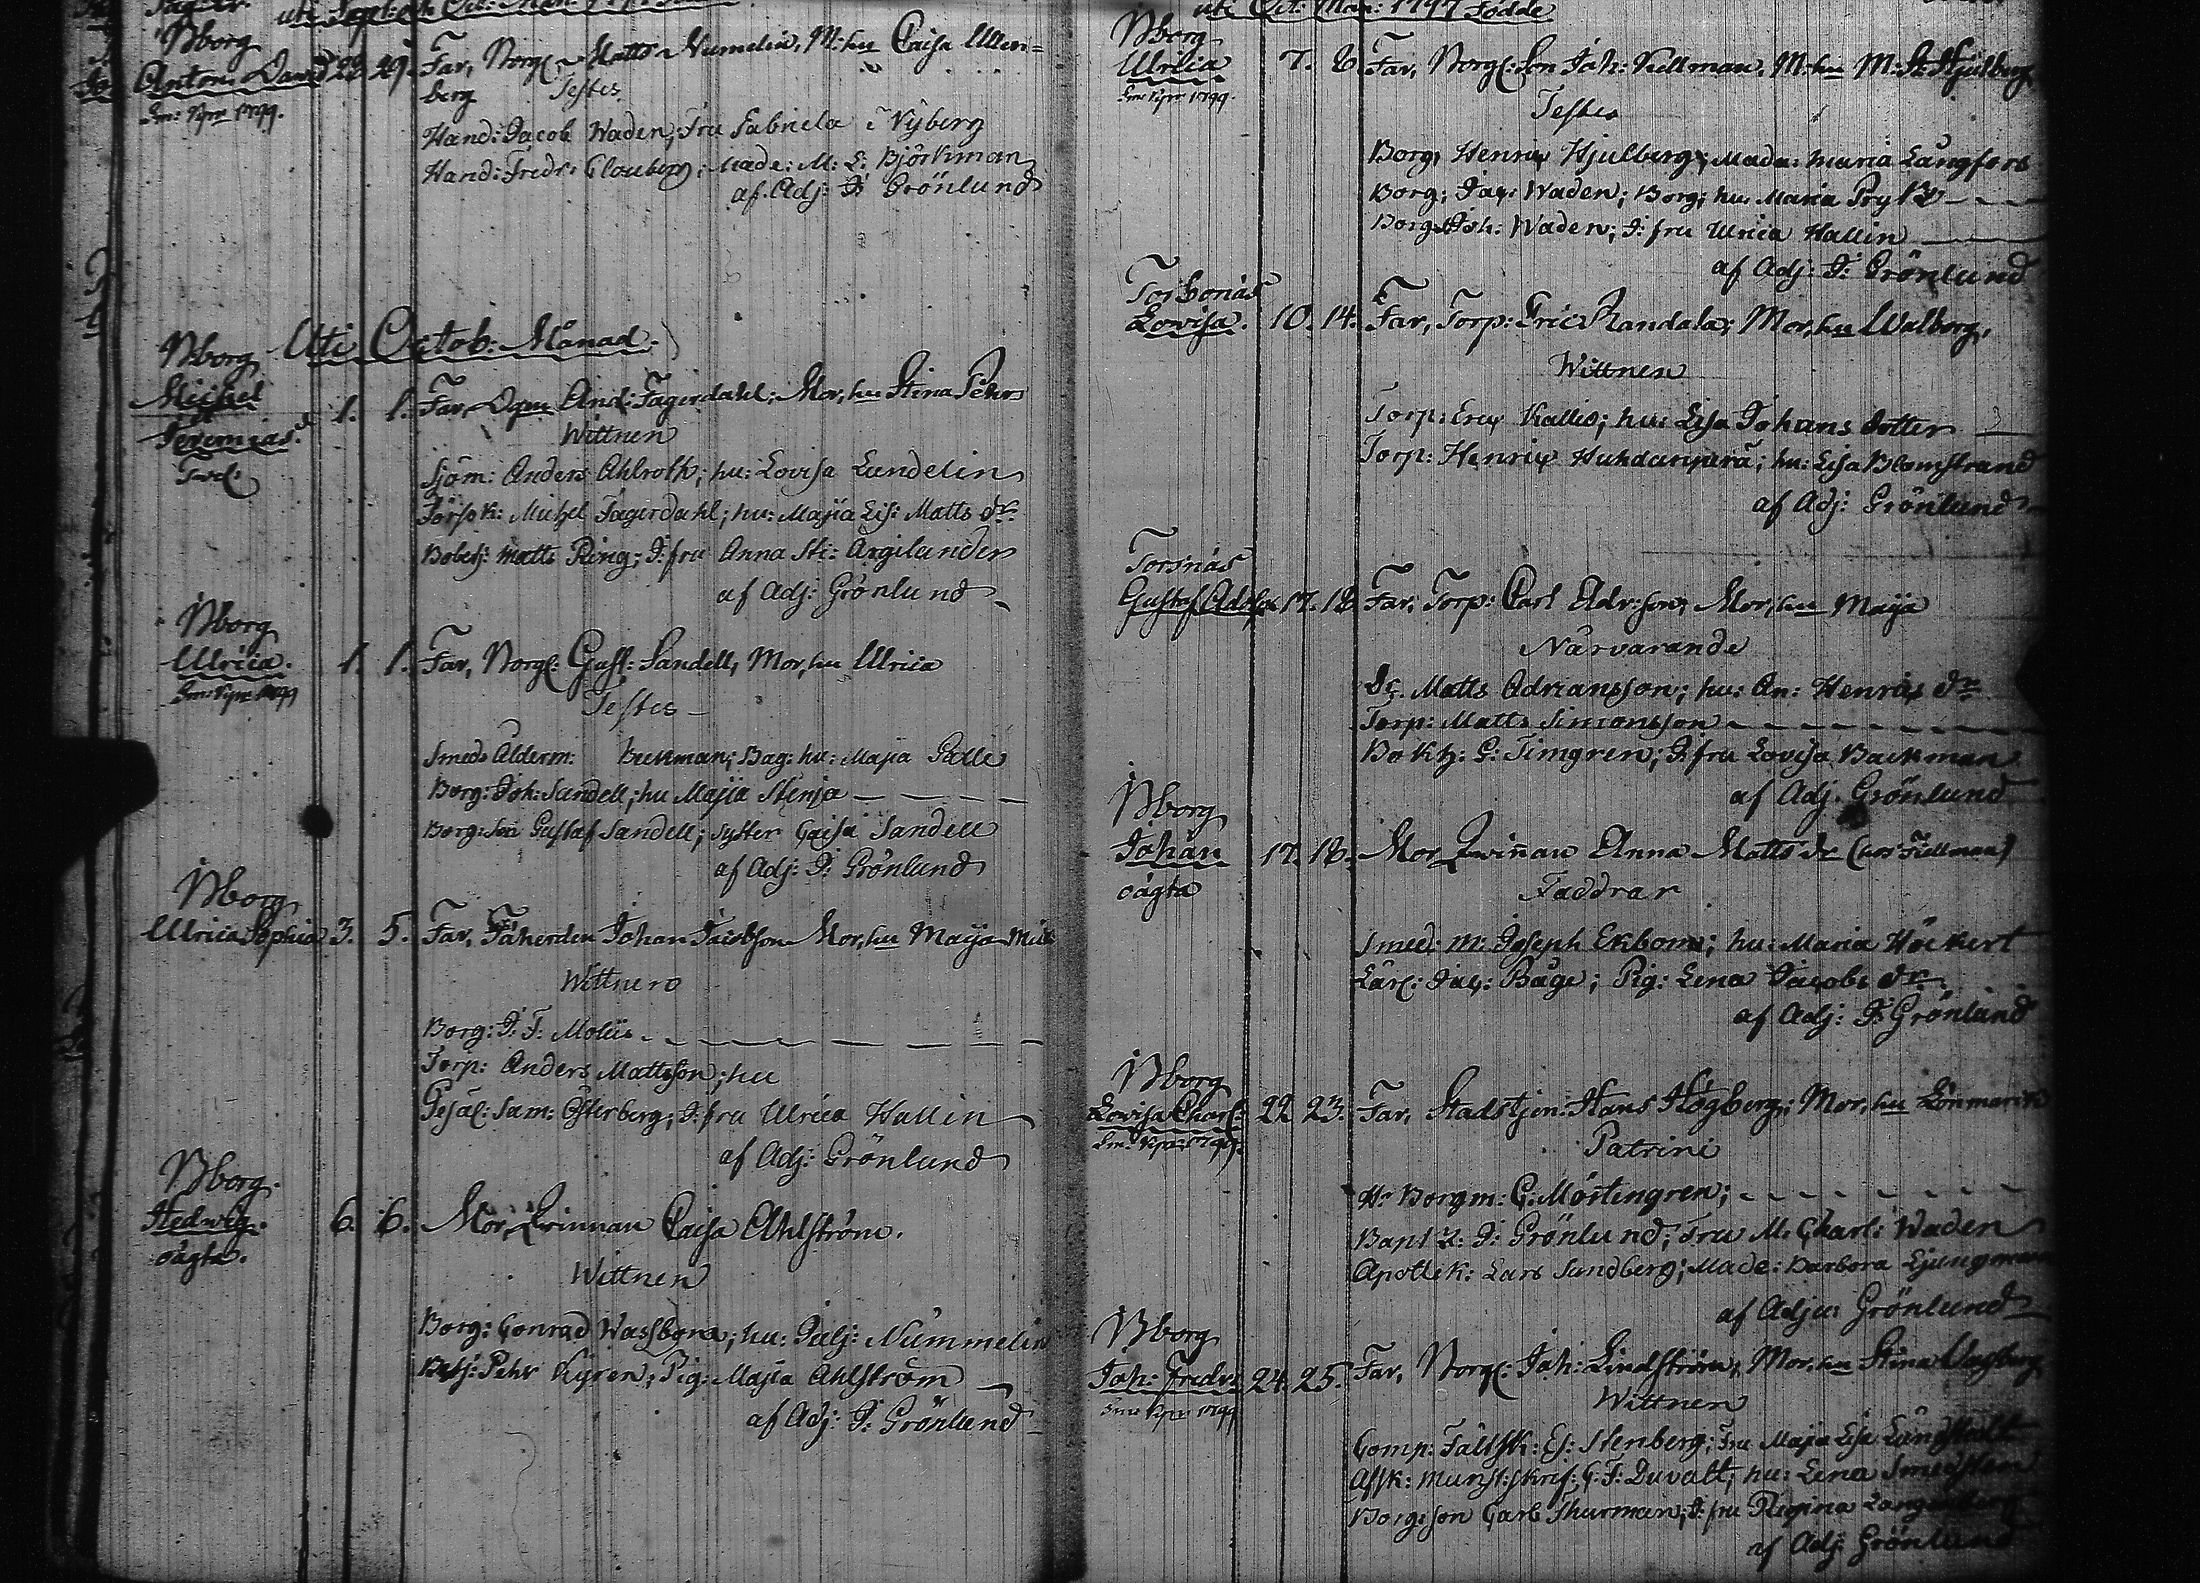 uti Oct: Mån: 1797 Födde
Bborg
Anton David 28. 29. Far, Borg: Matts Numelin, M: hu Caisa Ullen=
berg Testes
Hand: Jacob Waden; Fru Gabriela Nyberg
Hand: Fredr: Clouberg; Made: M: L: Björkman
af Adj: J: Grönlund
Uti Octob: Månad.
Bborg
Michel
Jeremias 1. 1. Far, And: Fagerdahl; Mor, hu Stina Pehrs
Wittnen
Sjöm: Anders Ahlroth; hu: Lovisa Lundelin
Försök: Michel Fagerdahl; hu: Maja Lis: Matts dr
Matts Ring; J:fru Anna Sti: Argilander
af Adj: Grönlund
Bborg
Ulrica. 1. 1. Far, Borg: Gust: Sandell, Mor, hu Ulrica
Testes
Smeds Ålderm: Beckman; Bag: hu: Maja Galle
Borg: Joh: Sandell; hu Maja Stenja
Borg: son Gustaf Sandell; syster Caisa Sandell
af Adj: J: Grönlund
Bborg
Ulrica Sophia 3. 5. Far, Fäherden Johan Jacobson Mor, hu Maija
Wittnen
Borg: J: F: Moliis
Torp: Anders Mattsson; hu
Gesäl: Sam: Österberg; J:fru Ulrica Hallin
af Adj: Grönlund
Bborg.
Hedwig. 6. 6. Mor, Qvinnan Caisa Ahlström.
oägta.
Wittnen
Borg: Conrad Wassbom; hu: Nummelin
Pehr Kyren; Pig: Maja Ahlström
af Adj: J: Grönlund
Bborg
Ulrica 7. 8. Far, Borg: Son Joh: Kellman, M: hu M: St: Hjulberg
Testes
Borg: Henric Hjulberg; Mada: Maria Långfors
Borg: Jac: Waden; Borg: hu. Maria Pryss
Borg: Joh: Waden; J:fru Ulrica Hallin
af Adj: J: Grönlund
Torbonäs
Lovisa. 10. 14. Far, Torp: Eric Randala; Mor, hu Walborg,
Wittnen
Torp: Eric Kallio; hu: Lisa Johans dotter
Torp: Henric Huhdanperä; hu: Lisa Blomstrand
af Adj: Grönlund
Torsnäs
Gustaf Adolph 17. 18. Far, Torp: Carl Adr:son, Mor, hu Maija
Närvarande
Matts Adriansson; hu: An: Henrics dr
Torp: Matts Simonsson
Bokh: G: Timgren; J:fru Lovisa Backman
af Adj. Grönlund
Bborg
Johan 17. 18. Mor Qvinnan Anna Matts dr (hos Fiellman)
oägta
Faddrar
Smed: M: Joseph Ekbom; hu: Maria Höckert
Lärl: Jac: Båge; Pig: Lena Jacobs dr
af Adj: J: Grönlund
Bborg
Lovisa Charl: 22 23. Far, Stadstjen: Hans Högberg; Mor, hu Lönmarck
Patrini
Hr Borgm: C. Mårtengren;
J: Grönlund; Fru M. Charl: Waden
Apottek: Lars Sundberg; Made: Barbora Ljungman
af Adju: Grönlund
Bborg
Joh: Fredr: 24. 25. Far, Borg: Joh: Lindström, Mor, hu Stina
Wittnen
Comp: Fältsk: Es: Stenberg; Fru Maja Lisa
Afsk: Munst: skrif: C. F: Duvalt; hu: Lena
Borg: son Carl Thurman; J:fru Regina
af Adj: Grönlund